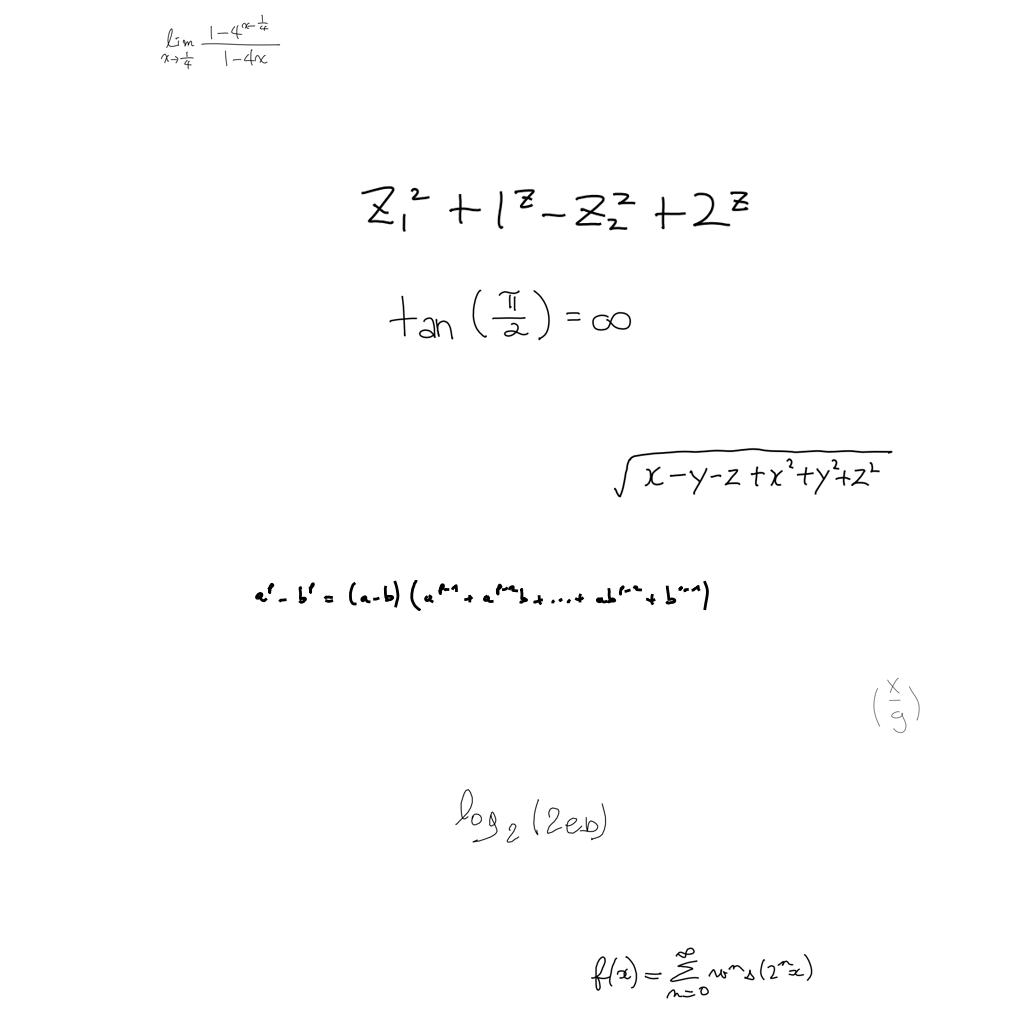 \lim_{x \to \frac{1}{4}} \frac{1-4^{x-\frac{1}{4}}}{1-4x}
z_1^2 + 1^z - z_2^2 + 2^z
\tan\left(\frac{\pi}{2}\right) = \infty
\sqrt{x-y-z+x^2+y^2+z^2}
a^p - b^p = (a-b)(a^{p-1} + a^{p-2}b + \ldots + ab^{p-2} + b^{p-1})
\left(\frac{x}{g}\right)
\log_2(2eb)
f(x) = \sum_{n=0}^{\infty} w^n s(2^n x)